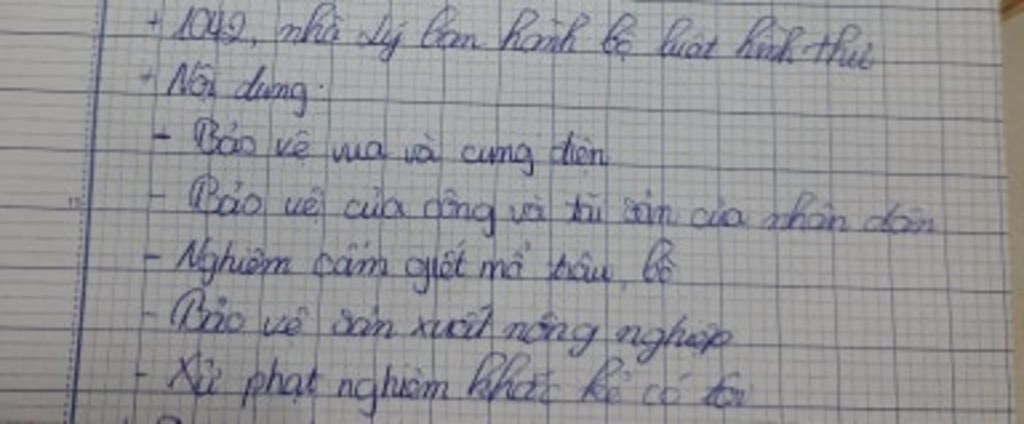 + 1042, nhà Lý ban hành bộ luật hình thư
+ Nội dung:
- Bảo vệ vua và cung điện
- Bảo vệ của công và tài sản của nhân dân
- Nghiêm cấm giết mổ trâu, bò
- Bảo vệ sản xuất nông nghiệp
- Xử phạt nghiêm khắc kẻ có tội